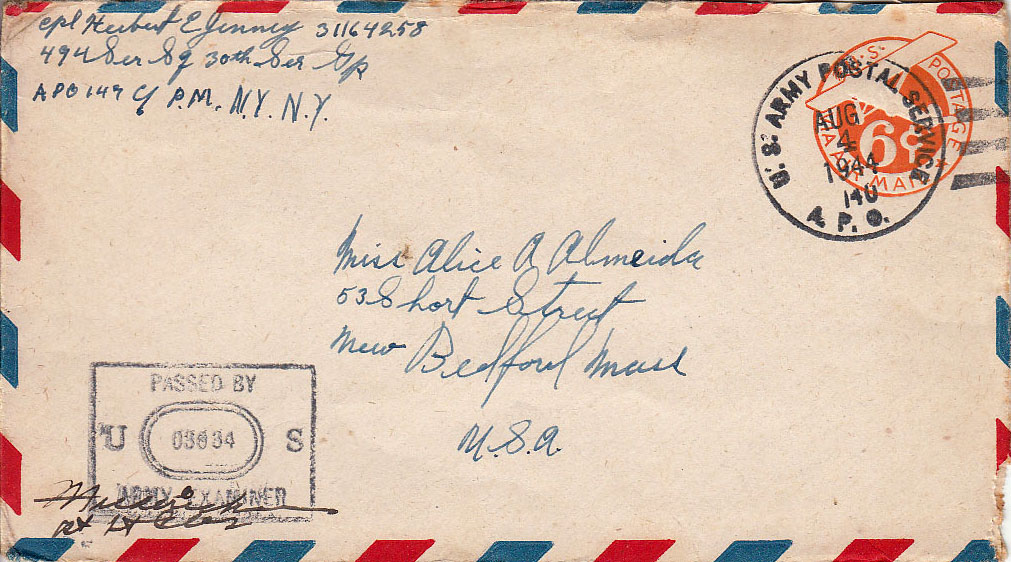 Cpl Herbert E Jenney 31164258
494 Ser Sq 30th Ser Gp
APO 149 c/ P.M. N.Y. N.Y.
U.S. POSTAGE
6¢
VIA AIR MAIL
U.S. ARMY POSTAL SERVICE
AUG
4
1944
140
A. P. O.
Miss Alice A Almeida
53 Short Street
New Bedford Mass
U.S.A.
PASSED BY
U S
ARMY EXAMINER